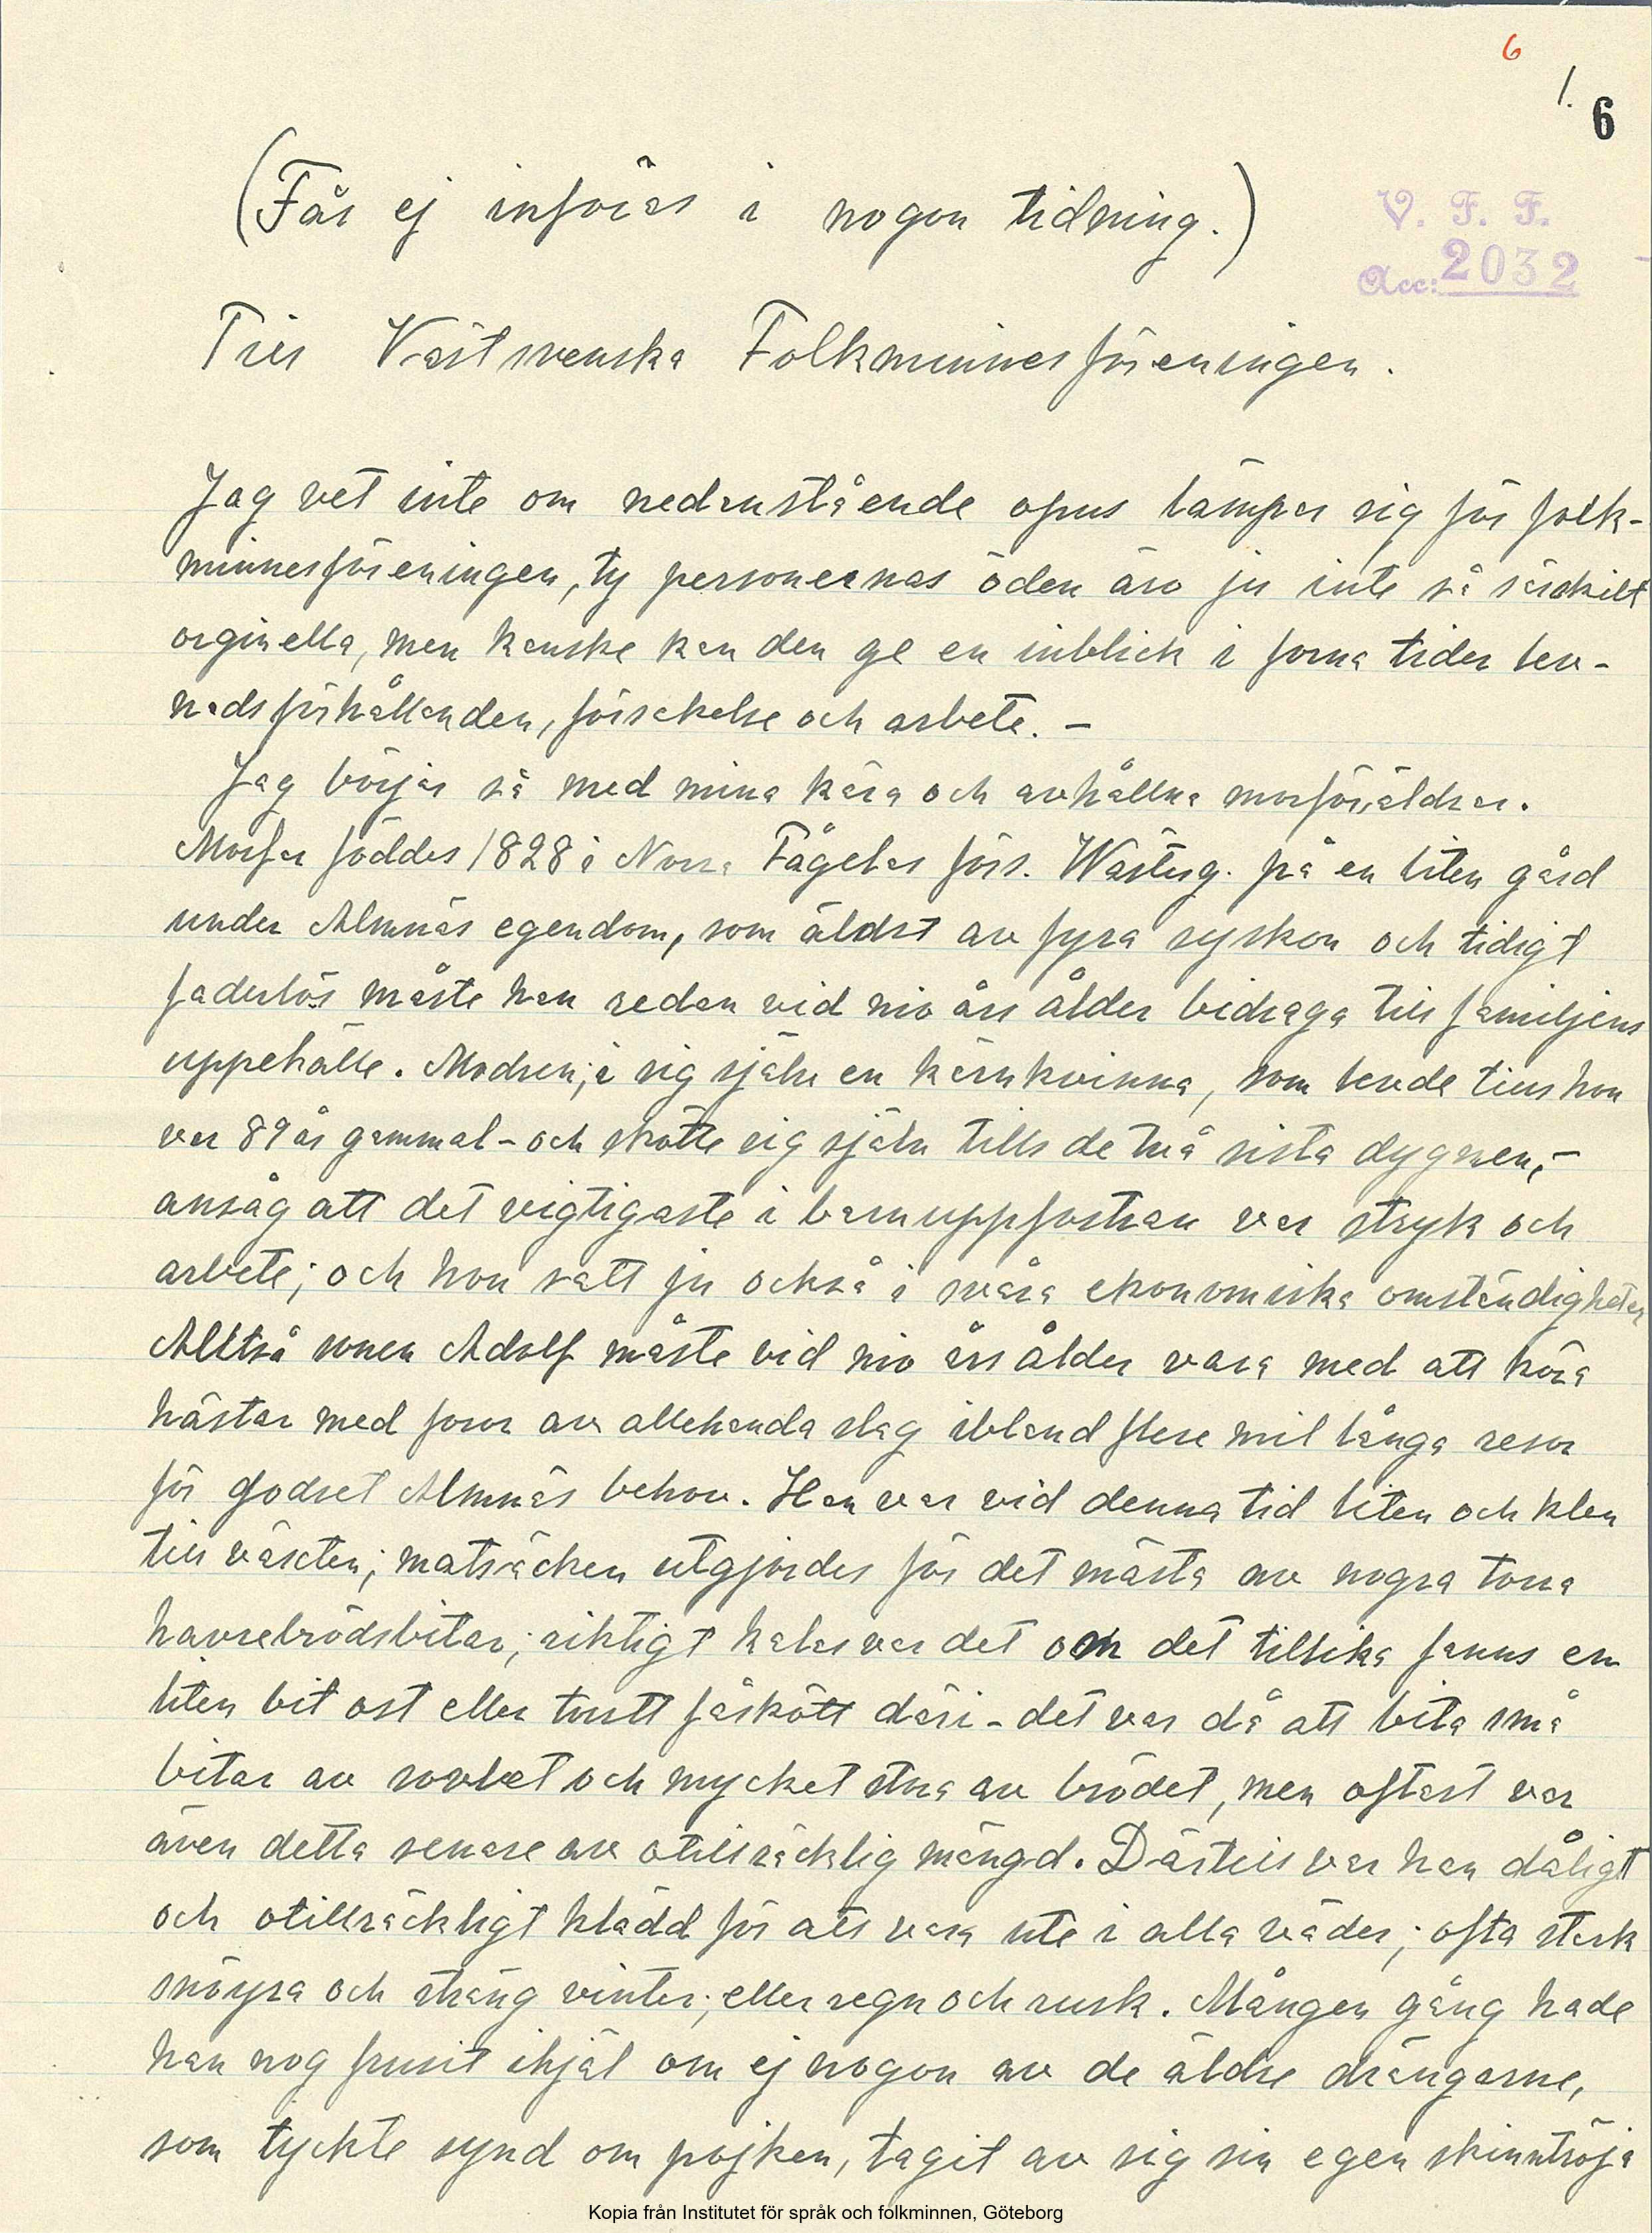 6
1.
6
(Får ej införas i nogon tidning.)
V. F. F.
Acc: 2032
Till Västsvenska Folkminnesföreningen.
Jag vet inte om nedanstående opus lämpar sig för folk-
minnesföreningen, ty personernas öden äro ju inte så särskilt
orginella, men kanske kan den ge en inblick i forna tider lev-
nadsförhållanden, försakelse och arbete. –
Jag börjar så med mina kära och avhållna morföräldrar.
Morfar föddes 1828 i Norra Fågelås förs. Wästerg. på en liten gård
under Almnäs egendom, som äldst av fyra syskon och tidigt
faderlös måste han redan vid nio års ålder bidraga till familjens
uppehälle. Modren, i sig själv en kärnkvinna, som levde tills hon
var 89 år gammal – och skötte sig själv tills de två sista dygnen, –
ansåg att det vigtigaste i barnuppfostran var stryk och
arbete; och hon satt ju också i svåra ekonomiska omständigheter
Alltså sonen Adolf måste vid nio års ålder vara med att köra
hästar med foror av allehanda slag ibland flere mil långa resor
för godset Almnäs behov. Han var vid denna tid liten och klen
till växten; matsäcken utgjordes för det mästa av nogra torra
havrebrödsbitar; riktigt kalas var det om det tillika fanns en
liten bit ost eller torrt fårkött däri – det var då att bita små
bitar av sovlet och mycket stora av brödet, men oftast var
även detta senare av otillräcklig mängd. Därtill var han dåligt
och otillräckligt klädd för att vara ute i alla väder; ofta stark
snöyra och sträng vinter; eller regn och rusk. Mången gång hade
han nog frusit ihjäl om ej nogon av de äldre drängarne,
som tyckte synd om pojken, tagit av sig sin egen skinntröja
Kopia från Institutet för språk och folkminnen, Göteborg